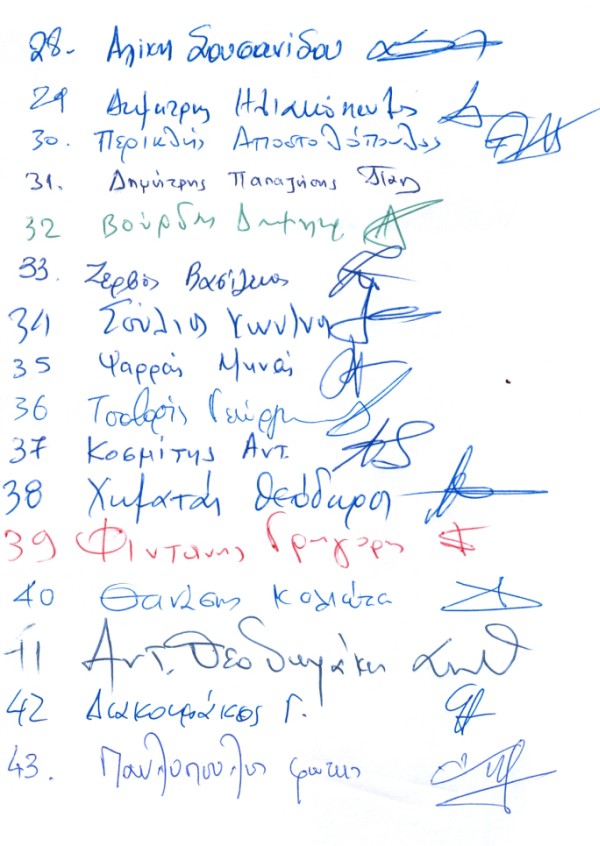 28. Αλίκη Σουσανίδου
29 Δημήτρης Ηλιακόπουλος
30. Περικλής Αποστολόπουλος
31. Δημήτρης Παπαζήσης
32 Βούρδης Δημήτρης
33. Ζερβός Βασίλειος
34 Σούλιος Γιαννης
35 Ψαρράς Μηνάς
36 Γεώργιος
37 Κοσμίτης Αντ.
38 Θεόδωρος
39 Γρηγόρης
40 Θανάσης Κολιώτα
41 Αντ. Θεοδωράκη
42 Διακουράκος Γ.
43. Παυλόπουλος Φώτης